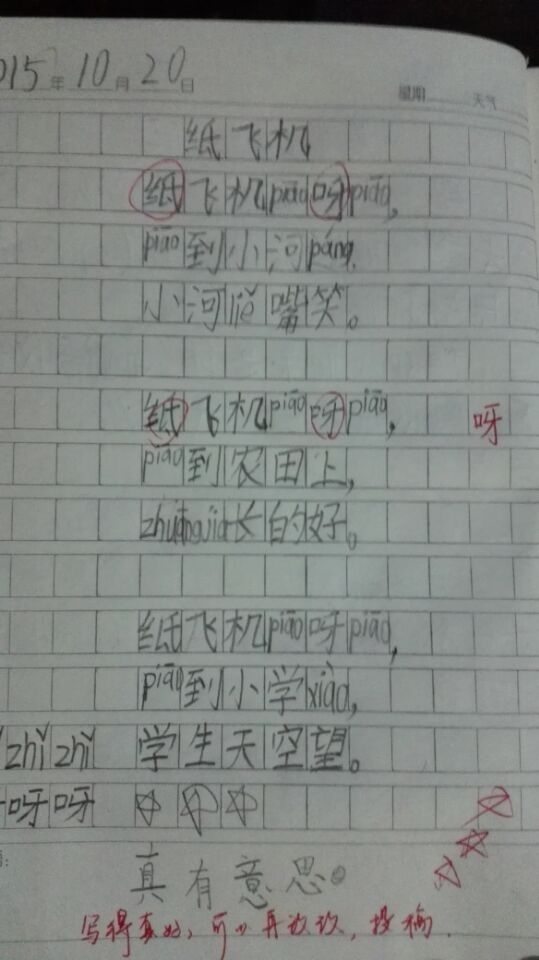 015年10月20日 星期 天气
纸飞机
纸飞机piāo呀piāo,
piāo到小河páng,
小河liě嘴笑。
纸飞机piāo呀piāo, 呀
piāo到农田上,
zhuāngjia长的好。
纸飞机piāo呀piāo,
piāo到小学xiào,
zhǐ zhǐ 学生天空望。
呀呀
真有意思。
写得真好,可以再改改,投稿.